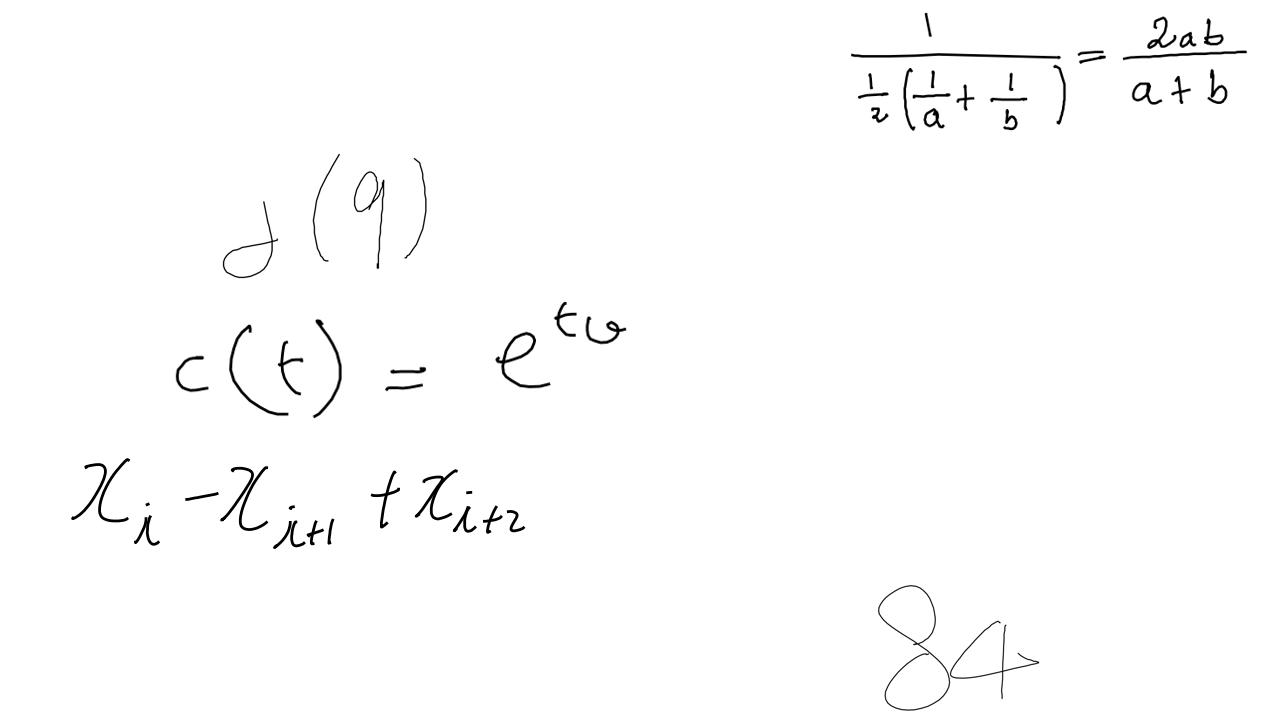 \frac{1}{\frac{1}{2}\left(\frac{1}{a}+\frac{1}{b}\right)}=\frac{2ab}{a+b}
d(q)
c(t)=e^{tv}
x_{i}-x_{i+1}+x_{i+2}
84